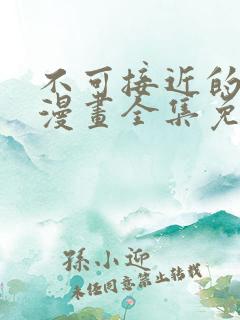 不可接近的
漫畫全集免
孫小迎
未经同意禁止转载